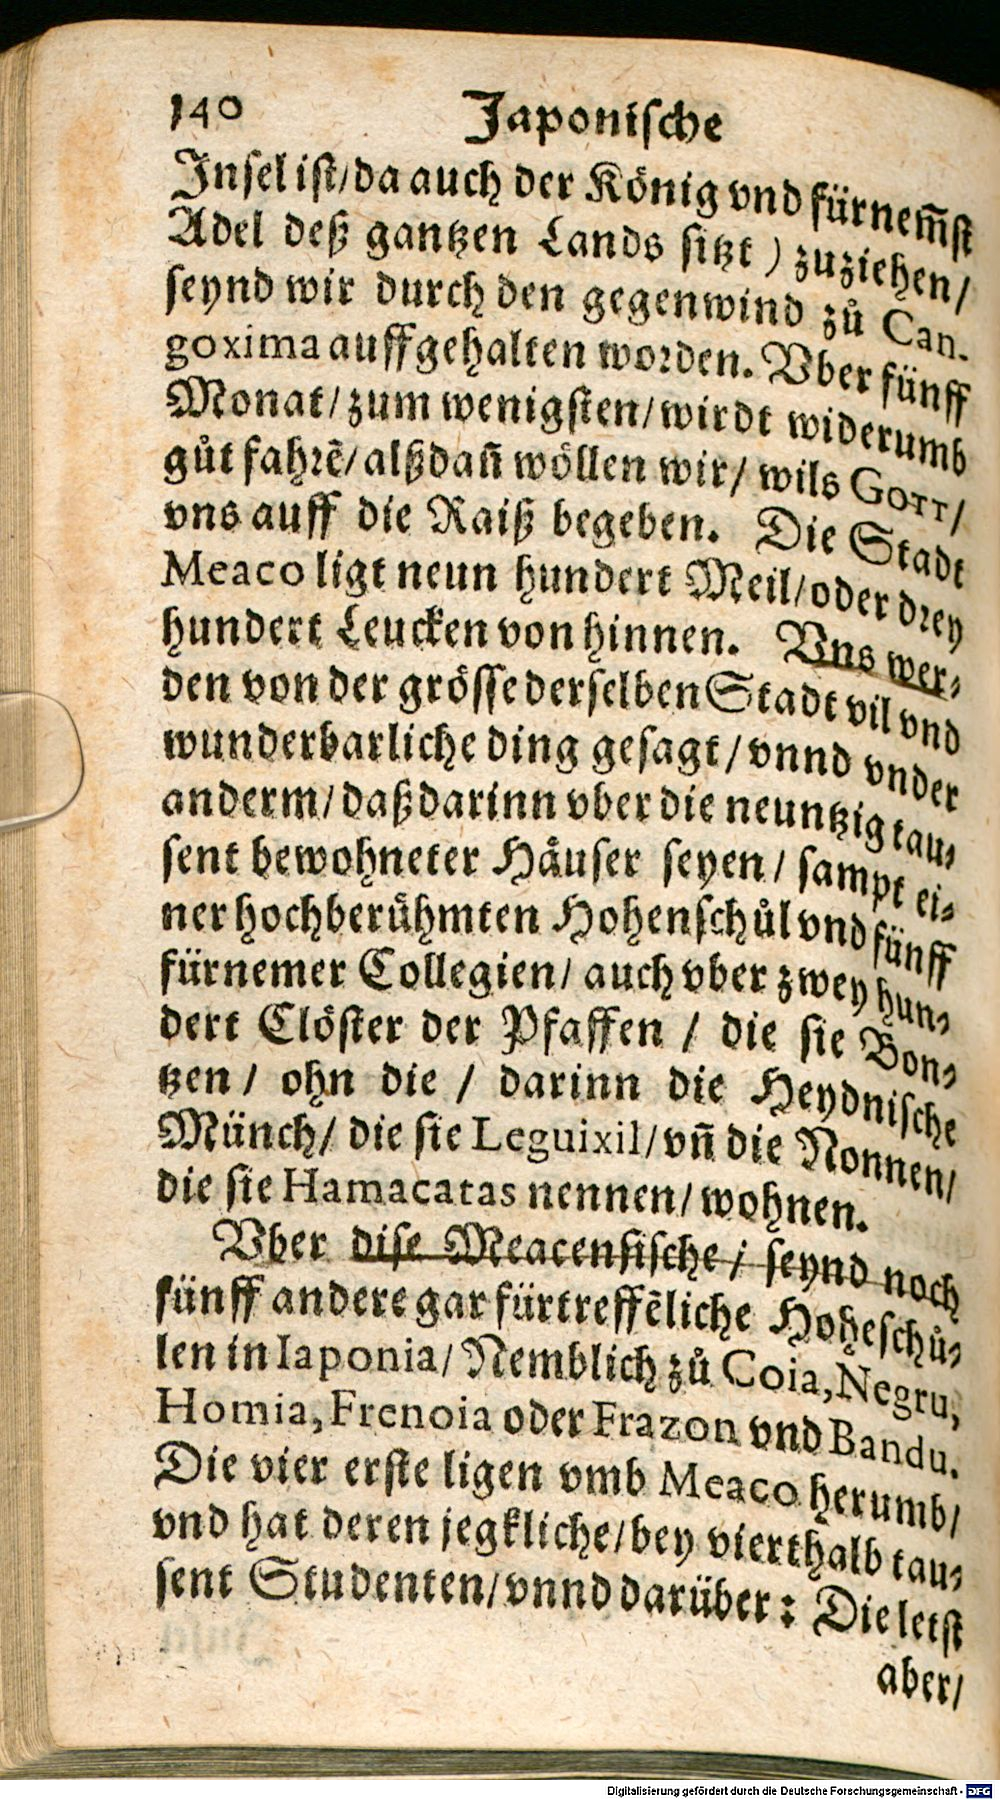 140 Japonische
Insel ist/da auch der König vnd fürnem̃st
Adel deß gantzen Lands sitzt ) zuziehen/
seynd wir durch den gegenwind zů Can-
goxima auffgehalten worden. Vber fünff
Monat/zum wenigsten/wirdt widerumb
gůt fahrẽ/alßdañ wöllen wir/ wils Gott/
vns auff die Raiß begeben. Die Stadt
Meaco ligt neun hundert Meil/oder drey
hundert Leucken von hinnen. Vns wer-
den von der grösse derselben Stadt vil vnd
wunderbarliche ding gesagt/vnnd vnder
anderm/daß darinn vber die neuntzig tau-
sent bewohneter Häuser seyen/ sampt ei-
ner hochberühmten Hohenschůl vnd fünff
fürnemer Collegien/ auch vber zwey hun-
dert Clöster der Pfaffen / die sie Bon-
tzen/ ohn die / darinn die Heydnische
Münch/ die sie Leguixil/vñ die Nonnen/
die sie Hamacatas nennen/wohnen.
Vber dise Meacensische/ seynd noch
fünff andere gar fürtreffẽliche Hoheschů-
len in Iaponia/Nemblich zů Coia,Negru,
Homia,Frenoia oder Frazon vnd Bandu.
Die vier erste ligen vmb Meaco herumb/
vnd hat deren jegkliche/bey vierthalb tau-
sent Studenten/vnnd darüber: Die letst
aber/
Digitalisierung gefördert durch die Deutsche Forschungsgemeinschaft - DFG